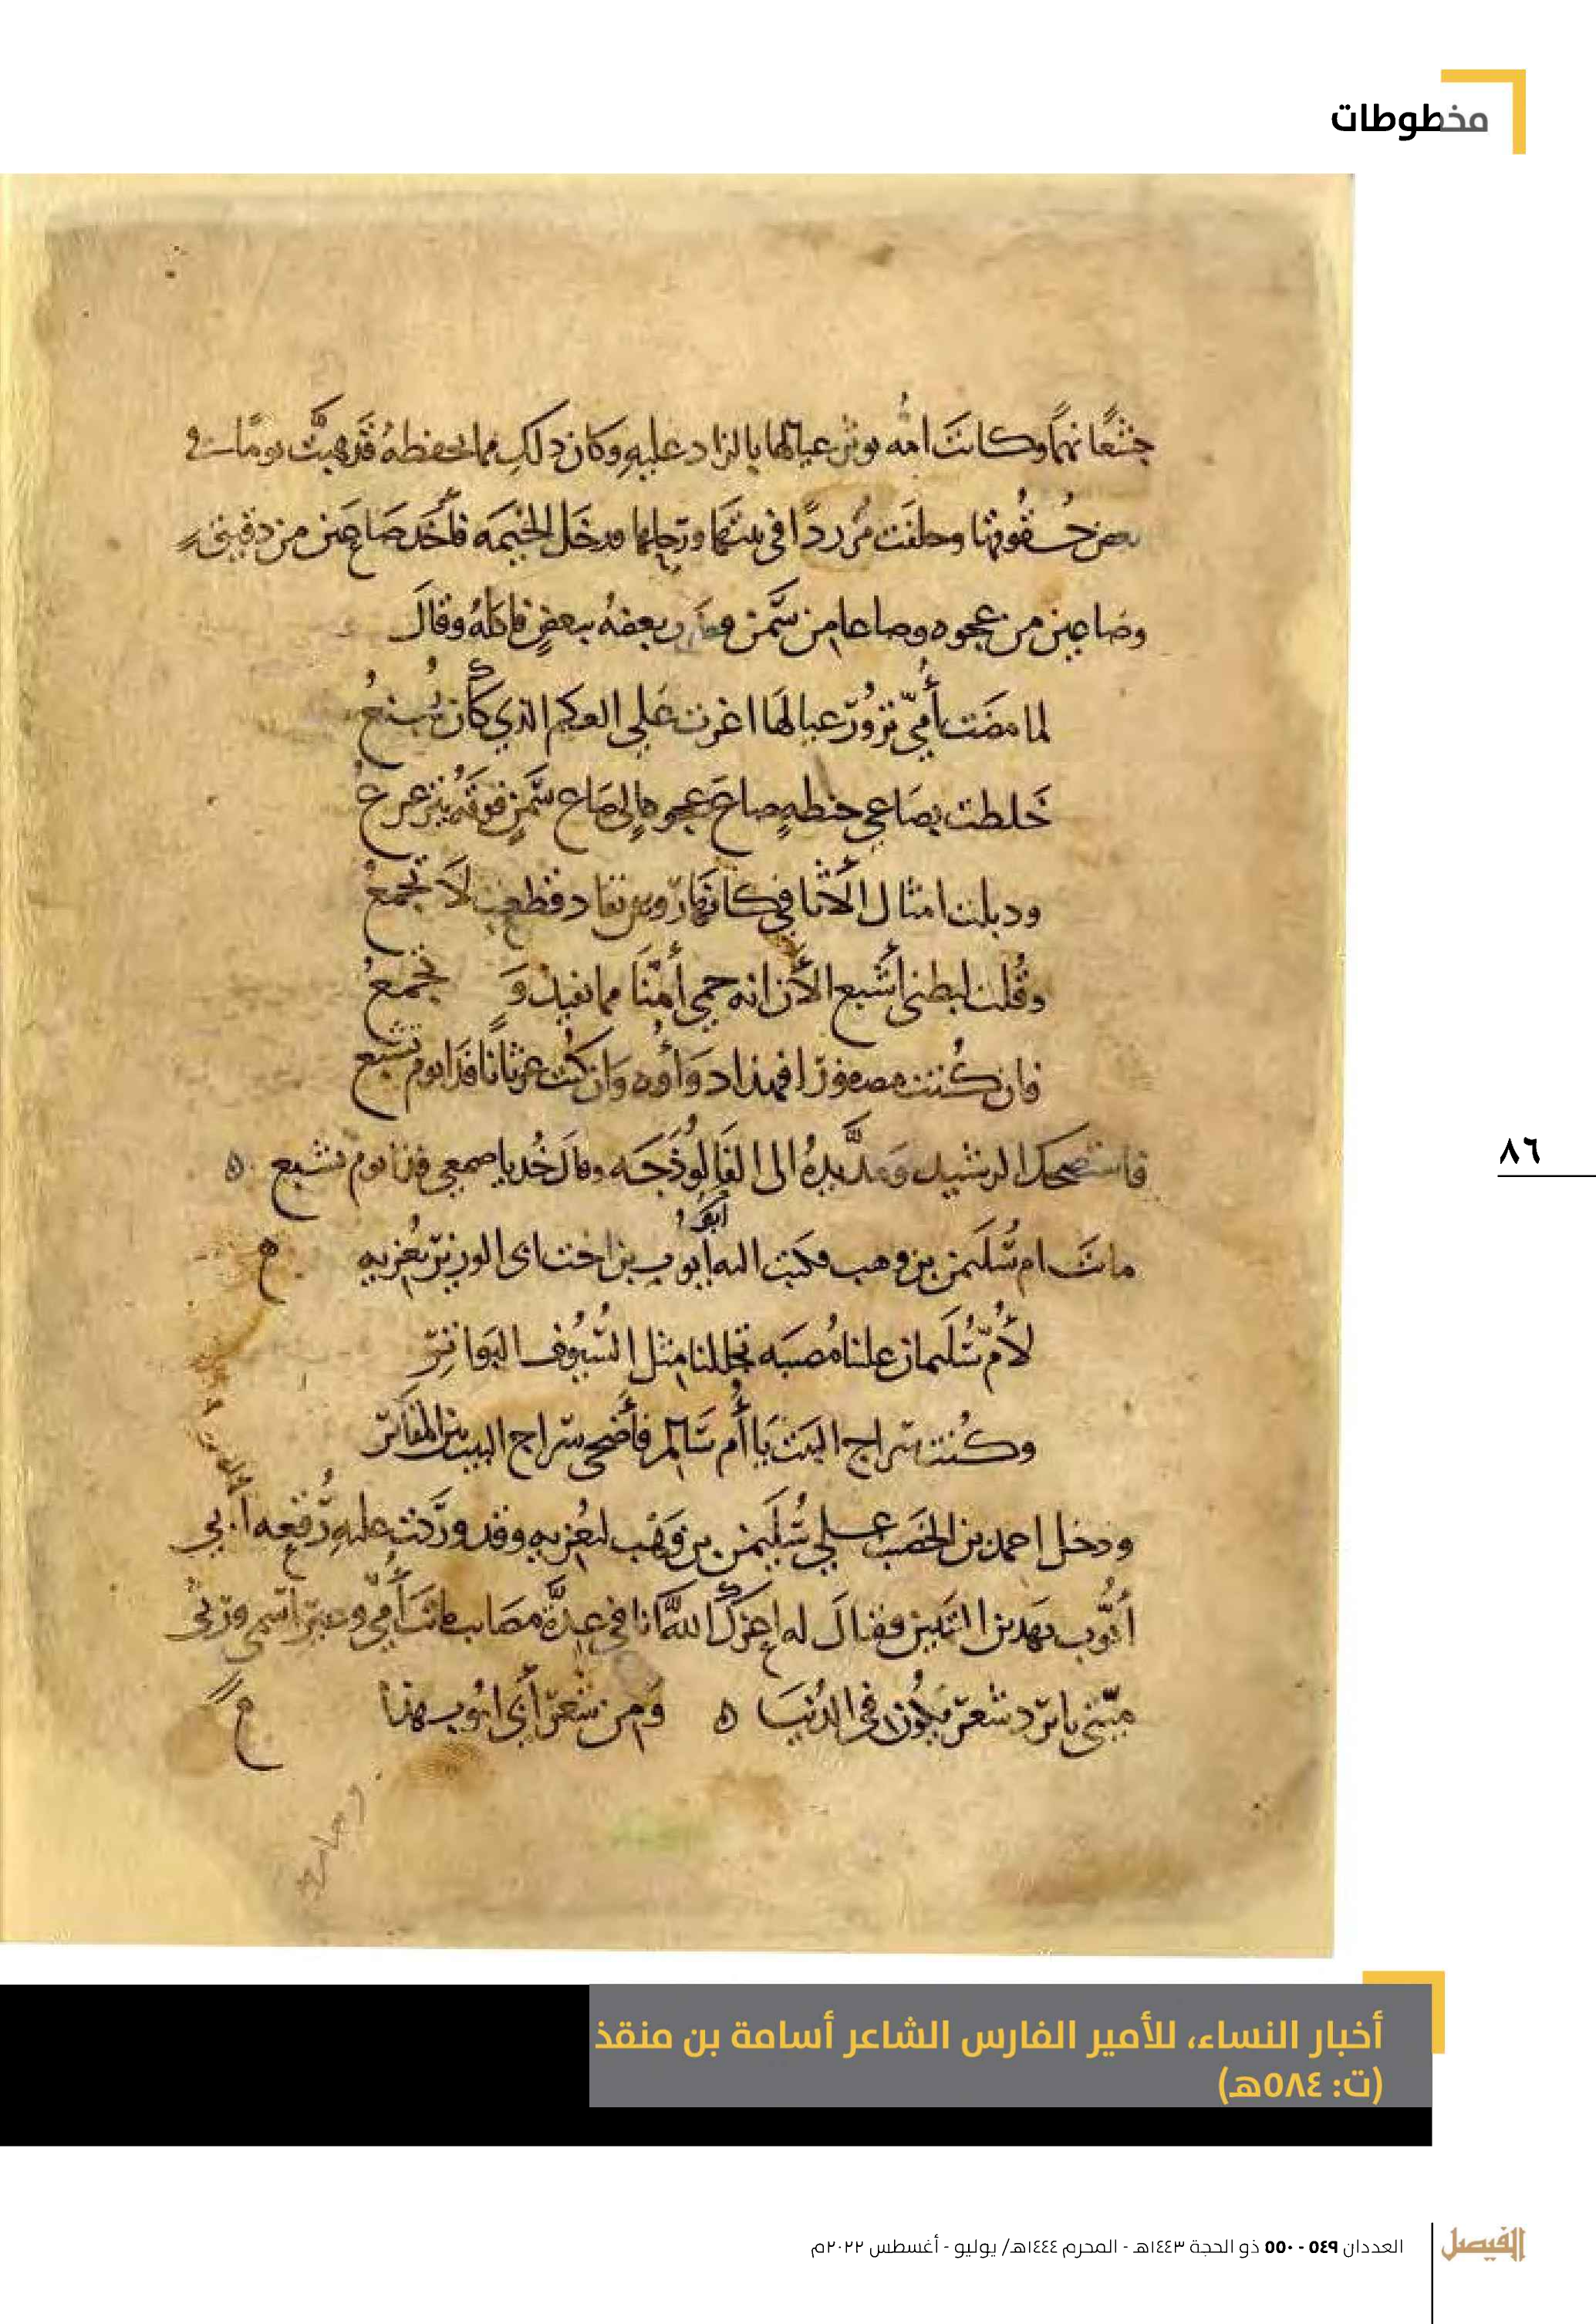 مخطوطات
جشعًا نهمًا وكانت امه توثر عيالها بالزاد عليه وكان ذلك مما يحفظه فذهبت يومًا في
بعض حقوقها وخلفت مزردًا في بيتها ورحلها فدخل الخيمه فأخذ صاعين من دقيق
وصاعين من عجوه وصاعا من سمن بعضه ببعض فاكله وقال
لما مضت أمي تزور عيالها اغرت على العكم الذي كان يمنع
خلطت بصاعي حنطه صاع عجوه الى صاع سمن فوقه
ودبلت امثال الأثافي كانها تجمع
وقلت لبطني أشبع الأن انه حمي أمنا مما تفيد و تجمع
فان كنت مصفورا فهذا دواؤه وان كنت غرثانا فذا يوم تشبع
فاستضحك الرشيد ومد يده الى الفالوذجه وقال خذ يا صمعي فذا يوم تشبع ه
ماتت ام سليمن بن وهب فكتب اليه أبو أيوب بن اخت ابى الوزير يعزيه
لأم سليمان علينا مصيبه مثل السيوف البواتر
وكنت سراج البيت يا أم سالم فأضحى سراج البيت بين المقابر
ودخل احمد بن الخصيب على سليمن بن وهب ليعزيه وقد وردت عليه رقعه أبي
أيوب بهذين البيتين فقال له اعزك الله انا في عدة مصايب ماتت أمي وغير اسمي ورثى
ميتي بابرد شعر يكون في الدنيا ه ومن شعر أبي ايوب هذا
٨٦
أخبار النساء، للأمير الفارس الشاعر أسامة بن منقذ
(ت: ٥٨٤هـ)
الفيصل العددان ٥٤٩ - ٥٥٠ ذو الحجة ١٤٤٣هـ - المحرم ١٤٤٤هـ/ يوليو - أغسطس ٢٠٢٢م